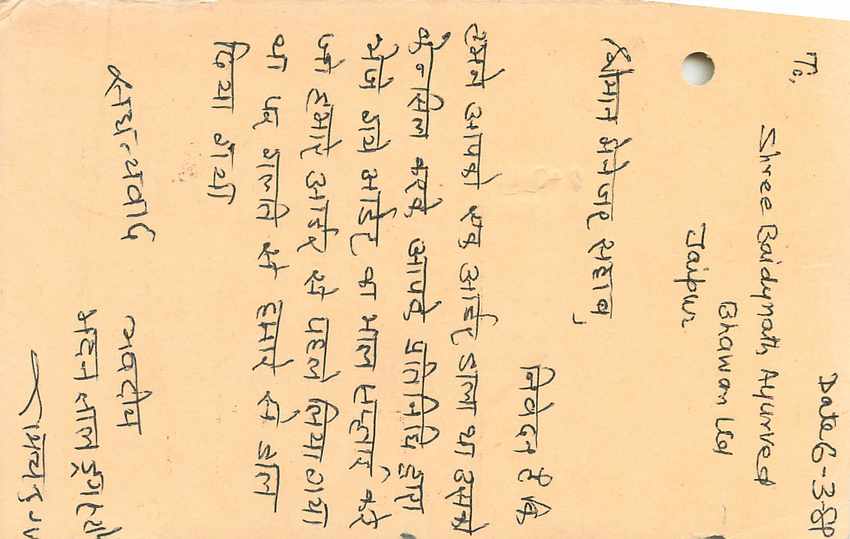 Date 6-3-89
To,
Shree Baidynath Ayurved
Bhawan Ltd
Jaipur
श्रीमान मेनेजर साहब,
निवेदन है कि
हमने आपको एक आर्डर डाला था उसको
केन्सिल करके आपके प्रतिनिधि द्वारा
भेजे गये आर्डर का माल सप्लाई करे
जो हमारे आर्डर से पहले लिया गया
था पर गलती से हमारे से डाल
दिया गया
सधन्यवाद
भवदीय
मदन लाल